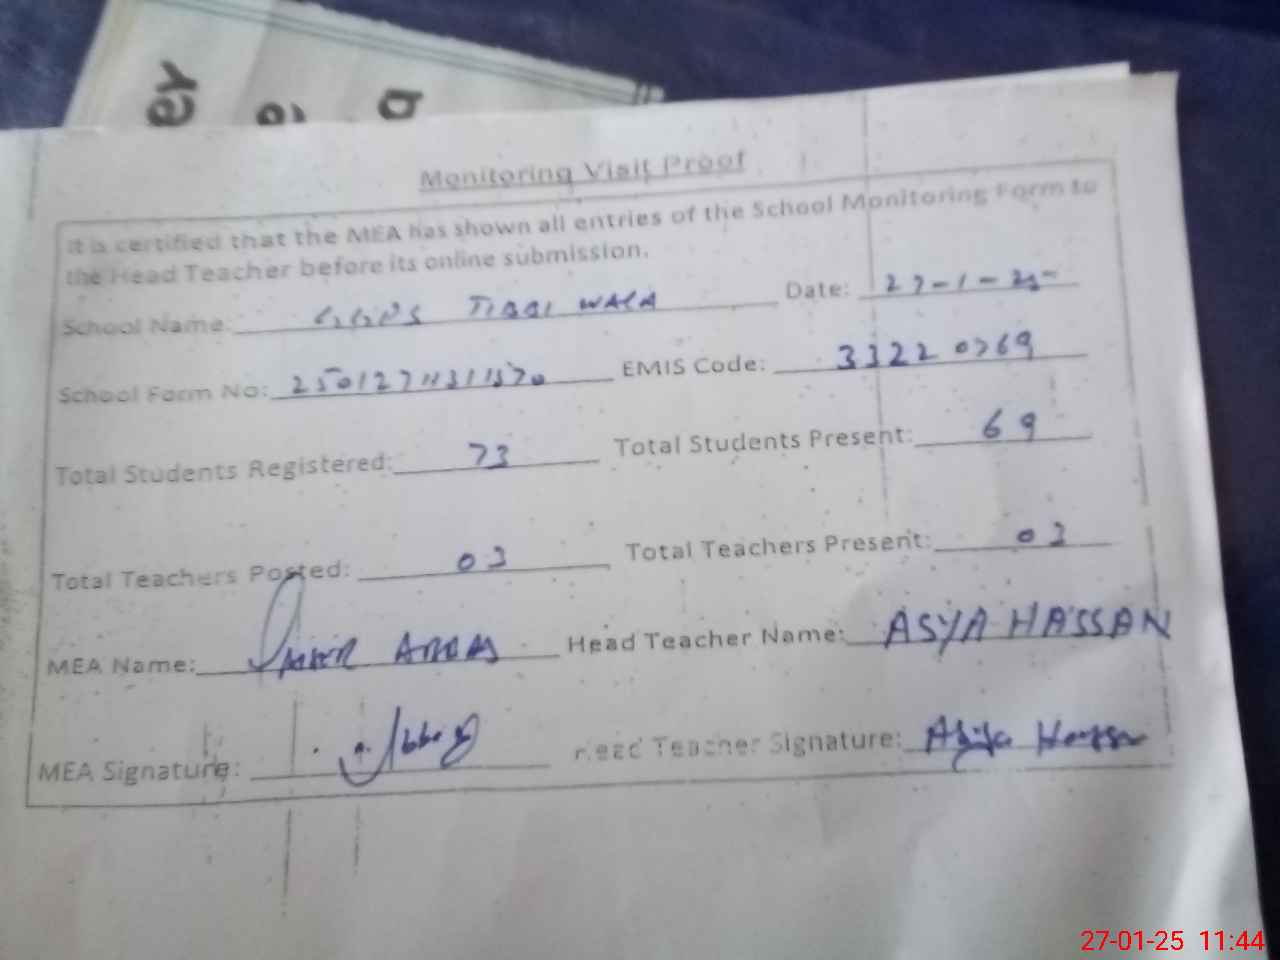 Monitoring Visit Proof
It is certified that the MEA has shown all entries of the School Monitoring Form to
the Head Teacher before its online submission.
School Name: GGPS TIBBI WALA Date: 27-1-25
School Form No: EMIS Code: 33220769
Total Students Registered: 73 Total Students Present: 69
Total Teachers Posted: 03 Total Teachers Present: 03
MEA Name: Head Teacher Name: ASYA HASSAN
MEA Signature: Head Teacher Signature:
27-01-25 11:44